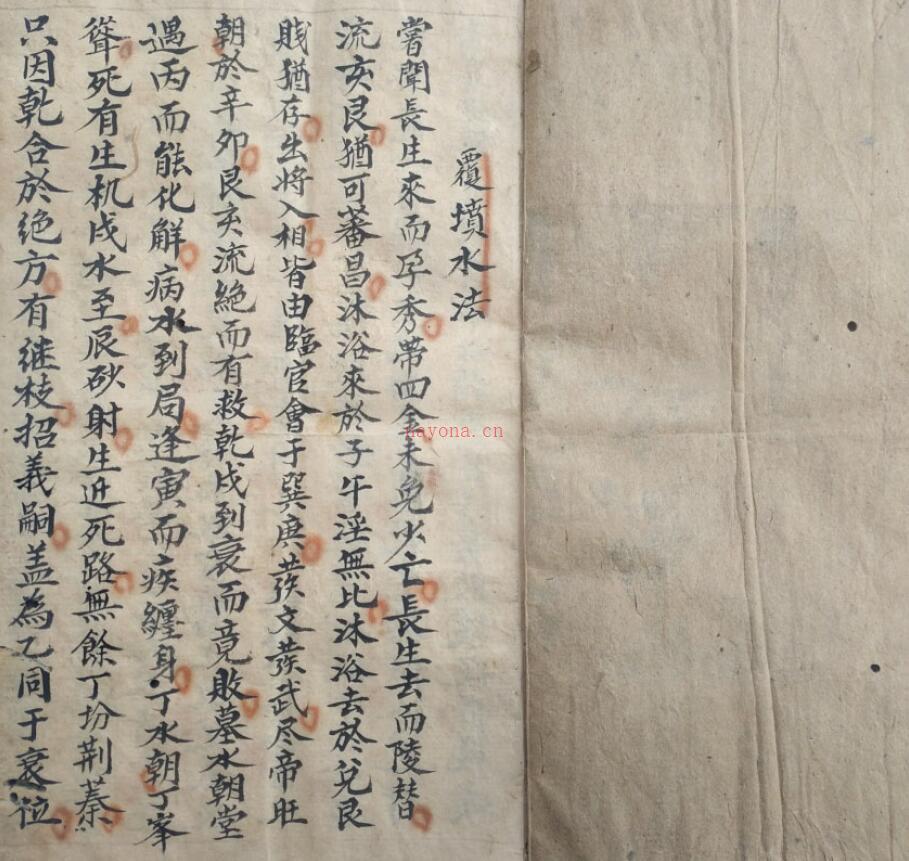 覆墳水法
嘗聞長生來而孕秀帶四金未免少亡長生去而陵替
流亥艮猶可蕃昌沐浴來於子午淫無比沐浴去於兌艮
賤猶存出將入相皆由臨官會于巽庚發文發武尽帝旺
朝於辛卯艮亥流絕而有救乾戌到衰而竟敗墓水朝堂
遇丙而能化解病水到局逢寅而疾纏身丁水朝丁峯
聳死有生机戌水至辰砂射生近死路無餘丁坋荆蓁
只因乾合於绝方有继枝招義嗣盖為乙同于衰位
nayona.cn